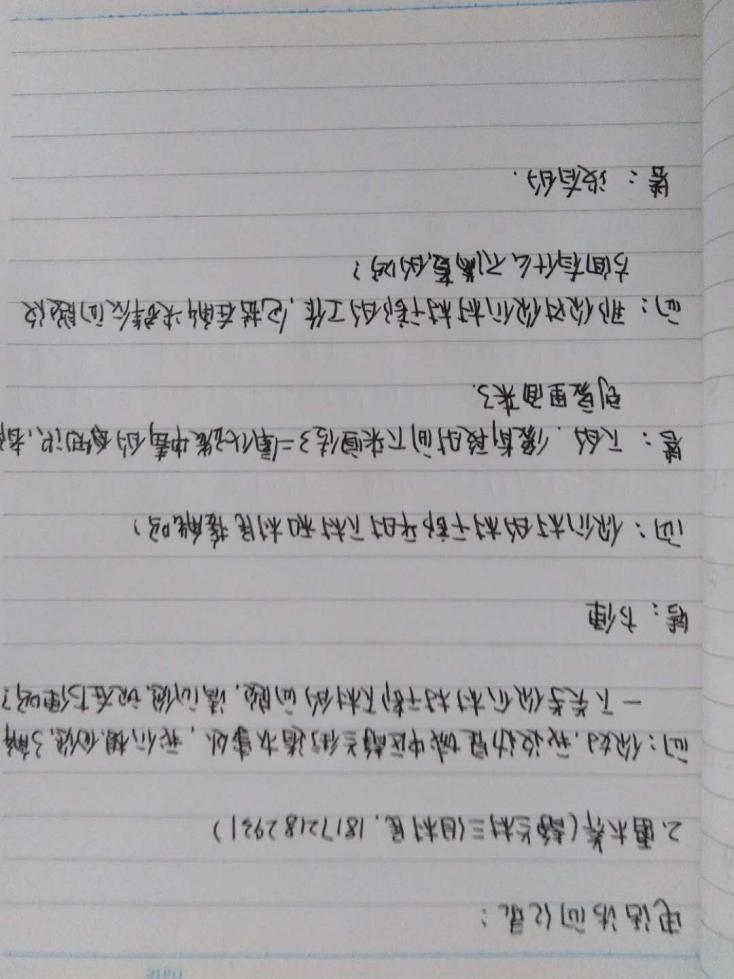 Date
电话访问记录:
2.覃木养(静兰村三组村民,18172182931)
问:你好,我这边是城中区静兰街道办事处,我们想向您了解
一下关于你们村村干部下村的问题,请问您现在方便吗?
答:方便
问:你们村的村干部平时下村和村民接触吗?
答:下的.像前段时间下来宣传3=煤气中毒的知识,都
到家里面来了.
问:那你对你们村村干部的工作,包括在解决群众问题这
方面有什么不满意的吗?
答:没有的.